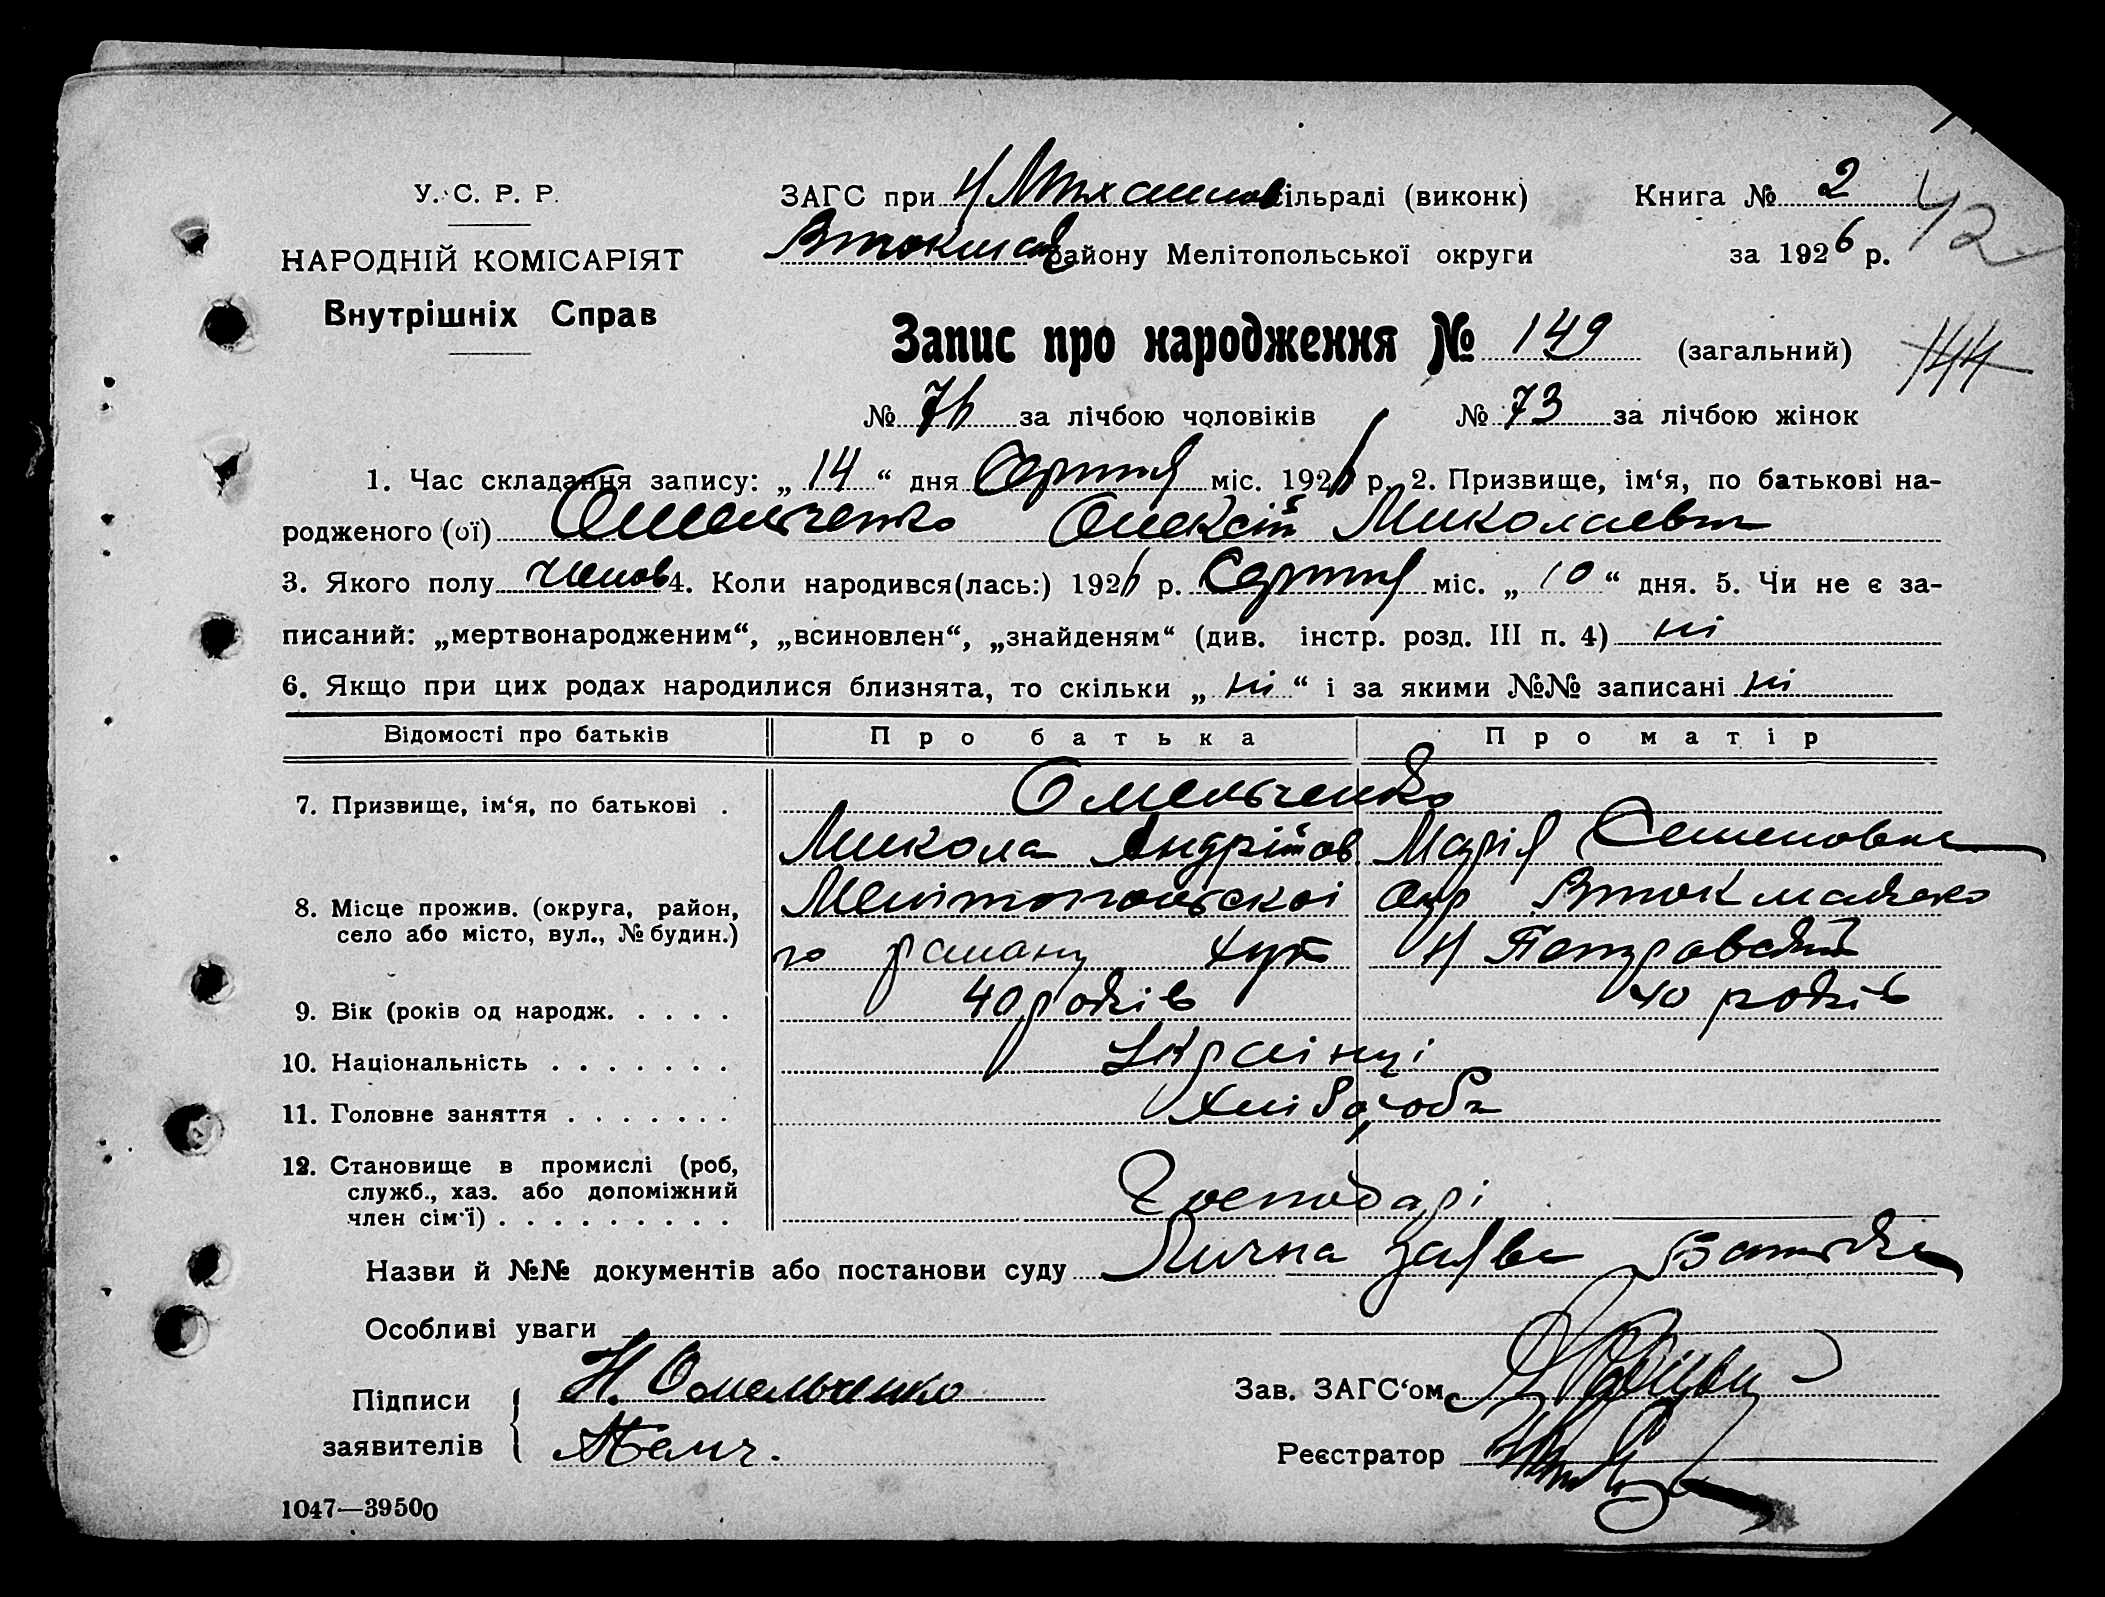 У. С. Р. Р.
НАРОДНІЙ КОМІСАРІЯТ
Внутрішніх Справ
ЗАГС при Н Михайлов сільраді (виконк)
Втокмаць району Мелітопольської округи
Книга № 2
за 1926 р.
42
Запис про народження № 149 (загальний)
144
№ 76 за лічбою чоловіків № 73 за лічбою жінок
1. Час складання запису: „ 14 “ дня Серпня міс. 1926 р. 2. Призвище, ім‘я, по батькові на-
родженого (ої) Омельченко Олексій Миколаевич
3. Якого полу чолов 4. Коли народився(лась:) 1926 р. Серпня міс. „ 10 “ дня. 5. Чи не є за-
писаний: „мертвонародженим“, „всиновлен“, „знайденям“ (див. інстр. розд. III п. 4) ні
6. Якщо при цих родах народилися близнята, то скільки „ ні “ і за якими №№ записані ні
Відомості про батьків Про батька Про матір
7. Призвище, ім‘я, по батькові . Омельченко
Микола Андрійов Марія Семеновна
8. Місце прожив. (округа, район,
село або місто, вул., № будин.)
Мелітопольскоі окр Втокмацько
го району хут Н Петровський
9. Вік (років од народж. . . . . 40 років 40 років
10. Національність . . . . . . . Українці
11. Головне заняття . . . . . . . Хліборобы
12. Становище в промислі (роб,
служб., хаз. або допоміжний
член сім‘ї) . . . . . . . . . Господарі
Назви й №№ документів або постанови суду Лична заява Батька
Особливі уваги
Підписи
заявителів
Н. Омельченко
Зав. ЗАГС‘ом
Реєстратор
1047—39500